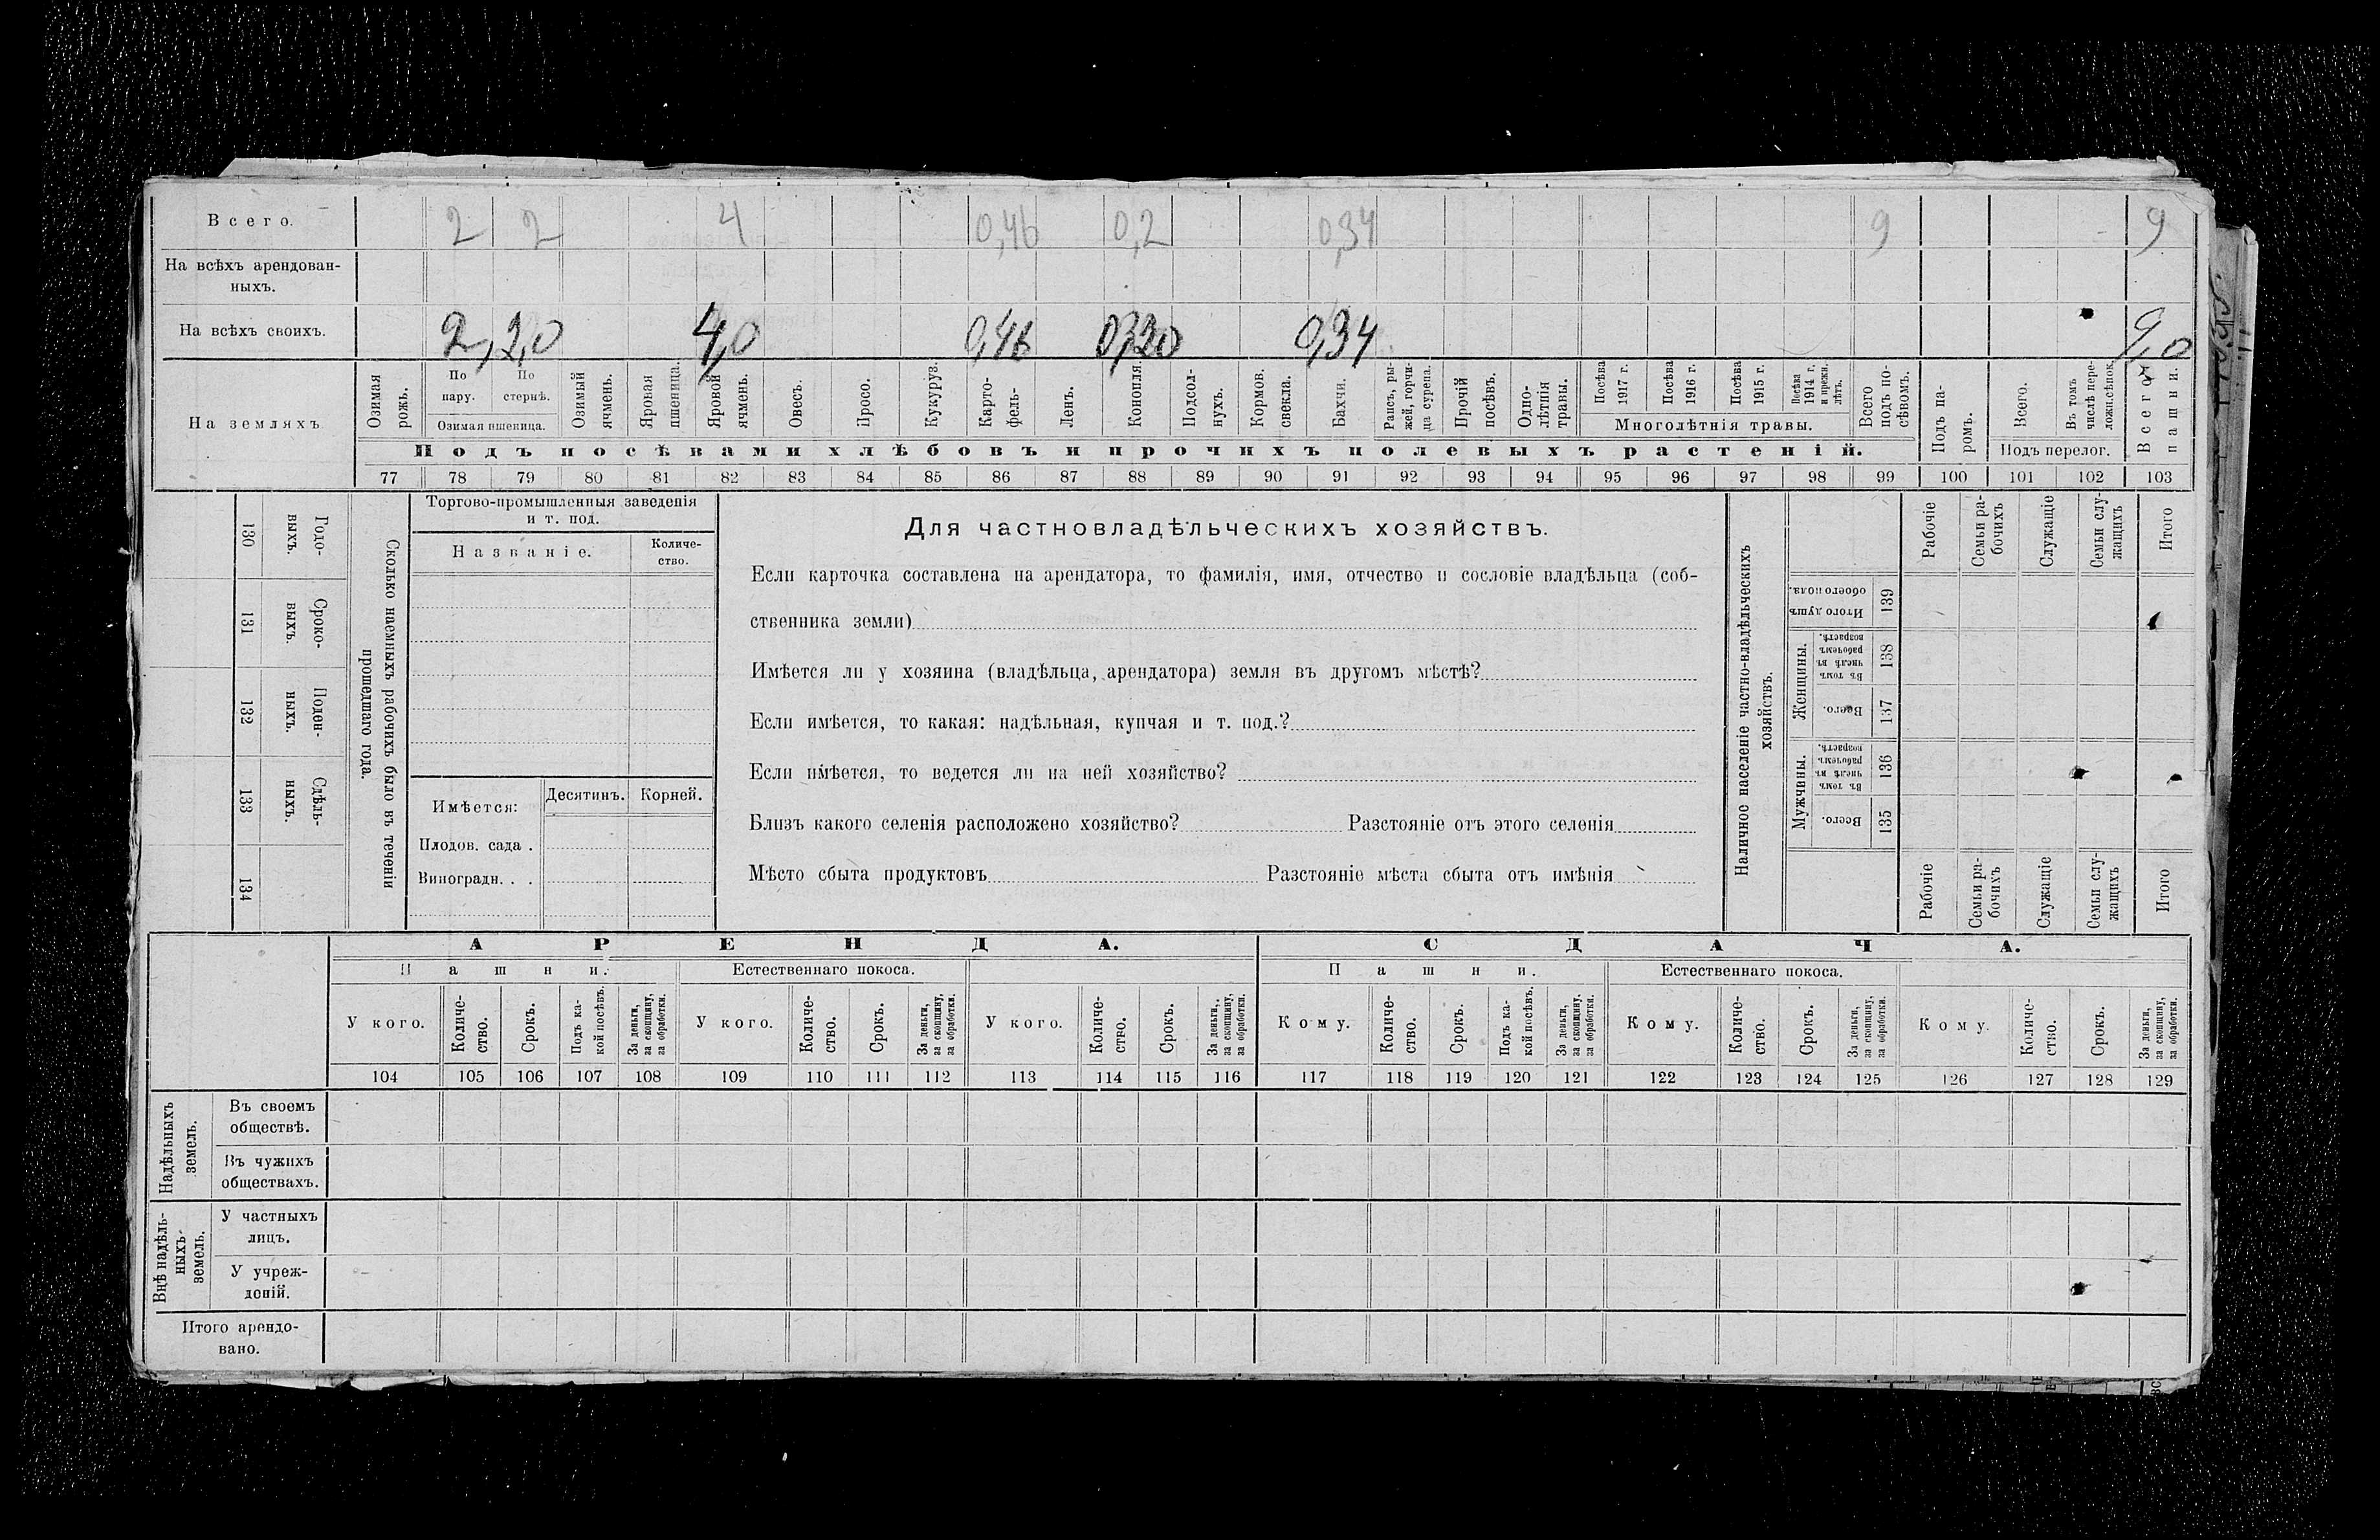 Всего. 2 2 4 0,46 0,2 0,34 9 9
На всѣхъ арендован-
ныхъ.
На всѣхъ своихъ. 2, 2,0 4,0 0,46 0,20 0,34 9,0
На земляхъ
Озимая рожь.
По пару.
По стернѣ.
Озимая пшеница.
Озимый ячмень.
Яровая пшеница.
Яровой ячмень.
Овесъ.
Просо.
Кукуруз.
Карто-
фель.
Ленъ.
Конопля.
Подсол-
нухъ.
Кормов. свекла.
Бахчи.
Рапсъ, ры-
жей, горчи-
ца сурепа.
Прочій посѣвъ.
Одно-
лѣтнія травы.
Посѣва 1917 г.
Посѣва 1916 г.
Посѣва 1915 г.
Посѣва 1914 г. и прежн. лѣтъ.
Многолѣтнія травы.
Всего подъ по-
сѣвомъ.
Подъ па-
ромъ.
Всего.
Въ томъ числѣ пере-
ложн.сѣнок.
Подъ перелог.
Всего пашни.
Подъ посѣвами хлѣбовъ и прочихъ полевыхъ растеній.
77 78 79 80 81 82 83 84 85 86 87 88 89 90 91 92 93 94 95 96 97 98 99 100 101 102 103
Годо-
выхъ.
130
Сроко-
выхъ.
131
Поден-
ныхъ.
132
Сдѣль-
ныхъ.
133
134
Сколько наемныхъ рабочихъ было въ теченіи
прошедшаго года.
Торгово-промышленныя заведенія
и т. под.
Названіе.
Количе-
ство.
Имѣется:
Десятинъ.
Корней.
Плодов. сада .
Виноградн. . .
Для частновладѣльческихъ хозяйствъ.
Если карточка составлена на арендатора, то фамилія, имя, отчество и сословіе владѣльца (соб-
ственника земли)
Имѣется ли у хозяина (владѣльца, арендатора) земля въ другомъ мѣстѣ?
Если имѣется, то какая: надѣльная, купчая и т. под.?
Если имѣется, то ведется ли на ней хозяйство?
Близъ какого селенія расположено хозяйство? Разстояніе отъ этого селенія
Мѣсто сбыта продуктовъ Разстояніе мѣста сбыта отъ имѣнія
Наличное населеніе частно-владѣльческихъ
хозяйствъ.
Рабочіе
Семьи ра-
бочихъ
Служащіе
Семьи слу-
жащихъ
Итого
Итого душъ обоего пола.
139
Женщины.
Въ томъ числѣ въ рабочемъ возрастѣ.
138
Всего.
137
Мужчины.
Въ томъ числѣ въ рабочемъ возрастѣ.
136
Всего.
135
Рабочіе
Семьи ра-
бочихъ
Служащіе
Семьи слу-
жащихъ
Итого
АРЕНДА. СДАЧА.
Пашни. Естественнаго покоса. Пашни. Естественнаго покоса.
У кого.
Количе-
ство.
Срокъ.
Подъ ка-
кой посѣвъ.
За деньги, за скопщину, за обработки.
У кого.
Количе-
ство.
Срокъ.
За деньги, за скопщину, за обработки.
У кого.
Количе-
ство.
Срокъ.
За деньги, за скопщину, за обработки.
Кому.
Количе-
ство.
Срокъ.
Подъ ка-
кой посѣвъ.
За деньги, за скопщину, за обработки.
Кому.
Количе-
ство.
Срокъ.
За деньги, за скопщину, за обработки.
Кому.
Количе-
ство.
Срокъ.
За деньги, за скопщину, за обработки.
104 105 106 107 108 109 110 111 112 113 114 115 116 117 118 119 120 121 122 123 124 125 126 127 128 129
Надѣльныхъ земель.
Въ своемъ
обществѣ.
Въ чужихъ
обществахъ.
Внѣ надѣль-
ныхъ земель.
У частныхъ
лицъ.
У учреж-
деній.
Итого арендо-
вано.